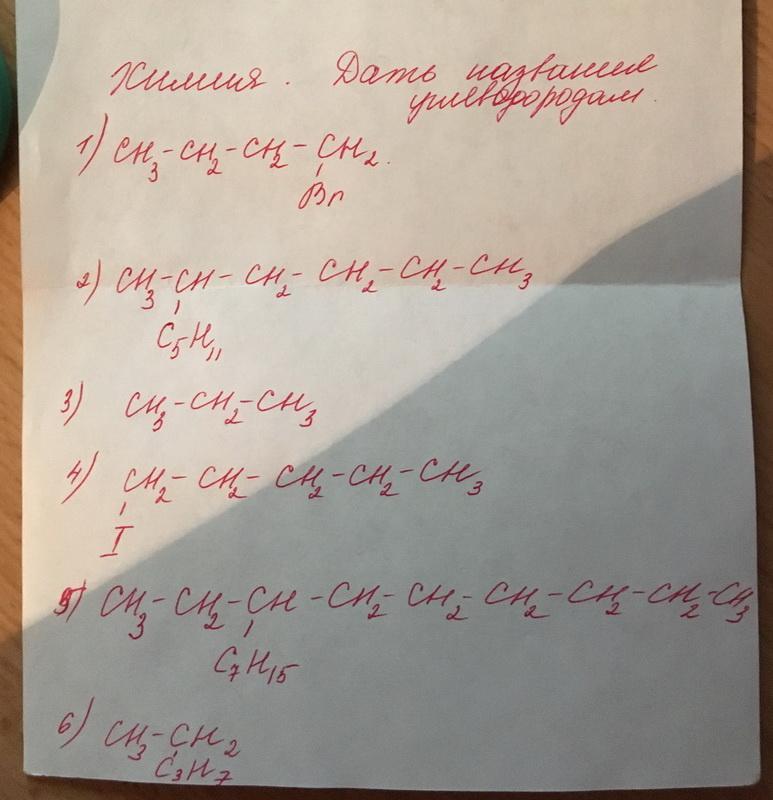 Химия. Дать название
углеводородам.
1) CH₃-CH₂-CH₂-CH₂.
Br
2) CH₃-CH-CH₂-CH₂-CH₂-CH₃
C₅H₁₁
3) CH₃-CH₂-CH₃
4) CH₂-CH₂-CH₂-CH₂-CH₃
I
5) CH₃-CH₂-CH-CH₂-CH₂-CH₂-CH₂-CH₂-CH₃
C₇H₁₅
6) CH₃-CH₂
C₃H₇